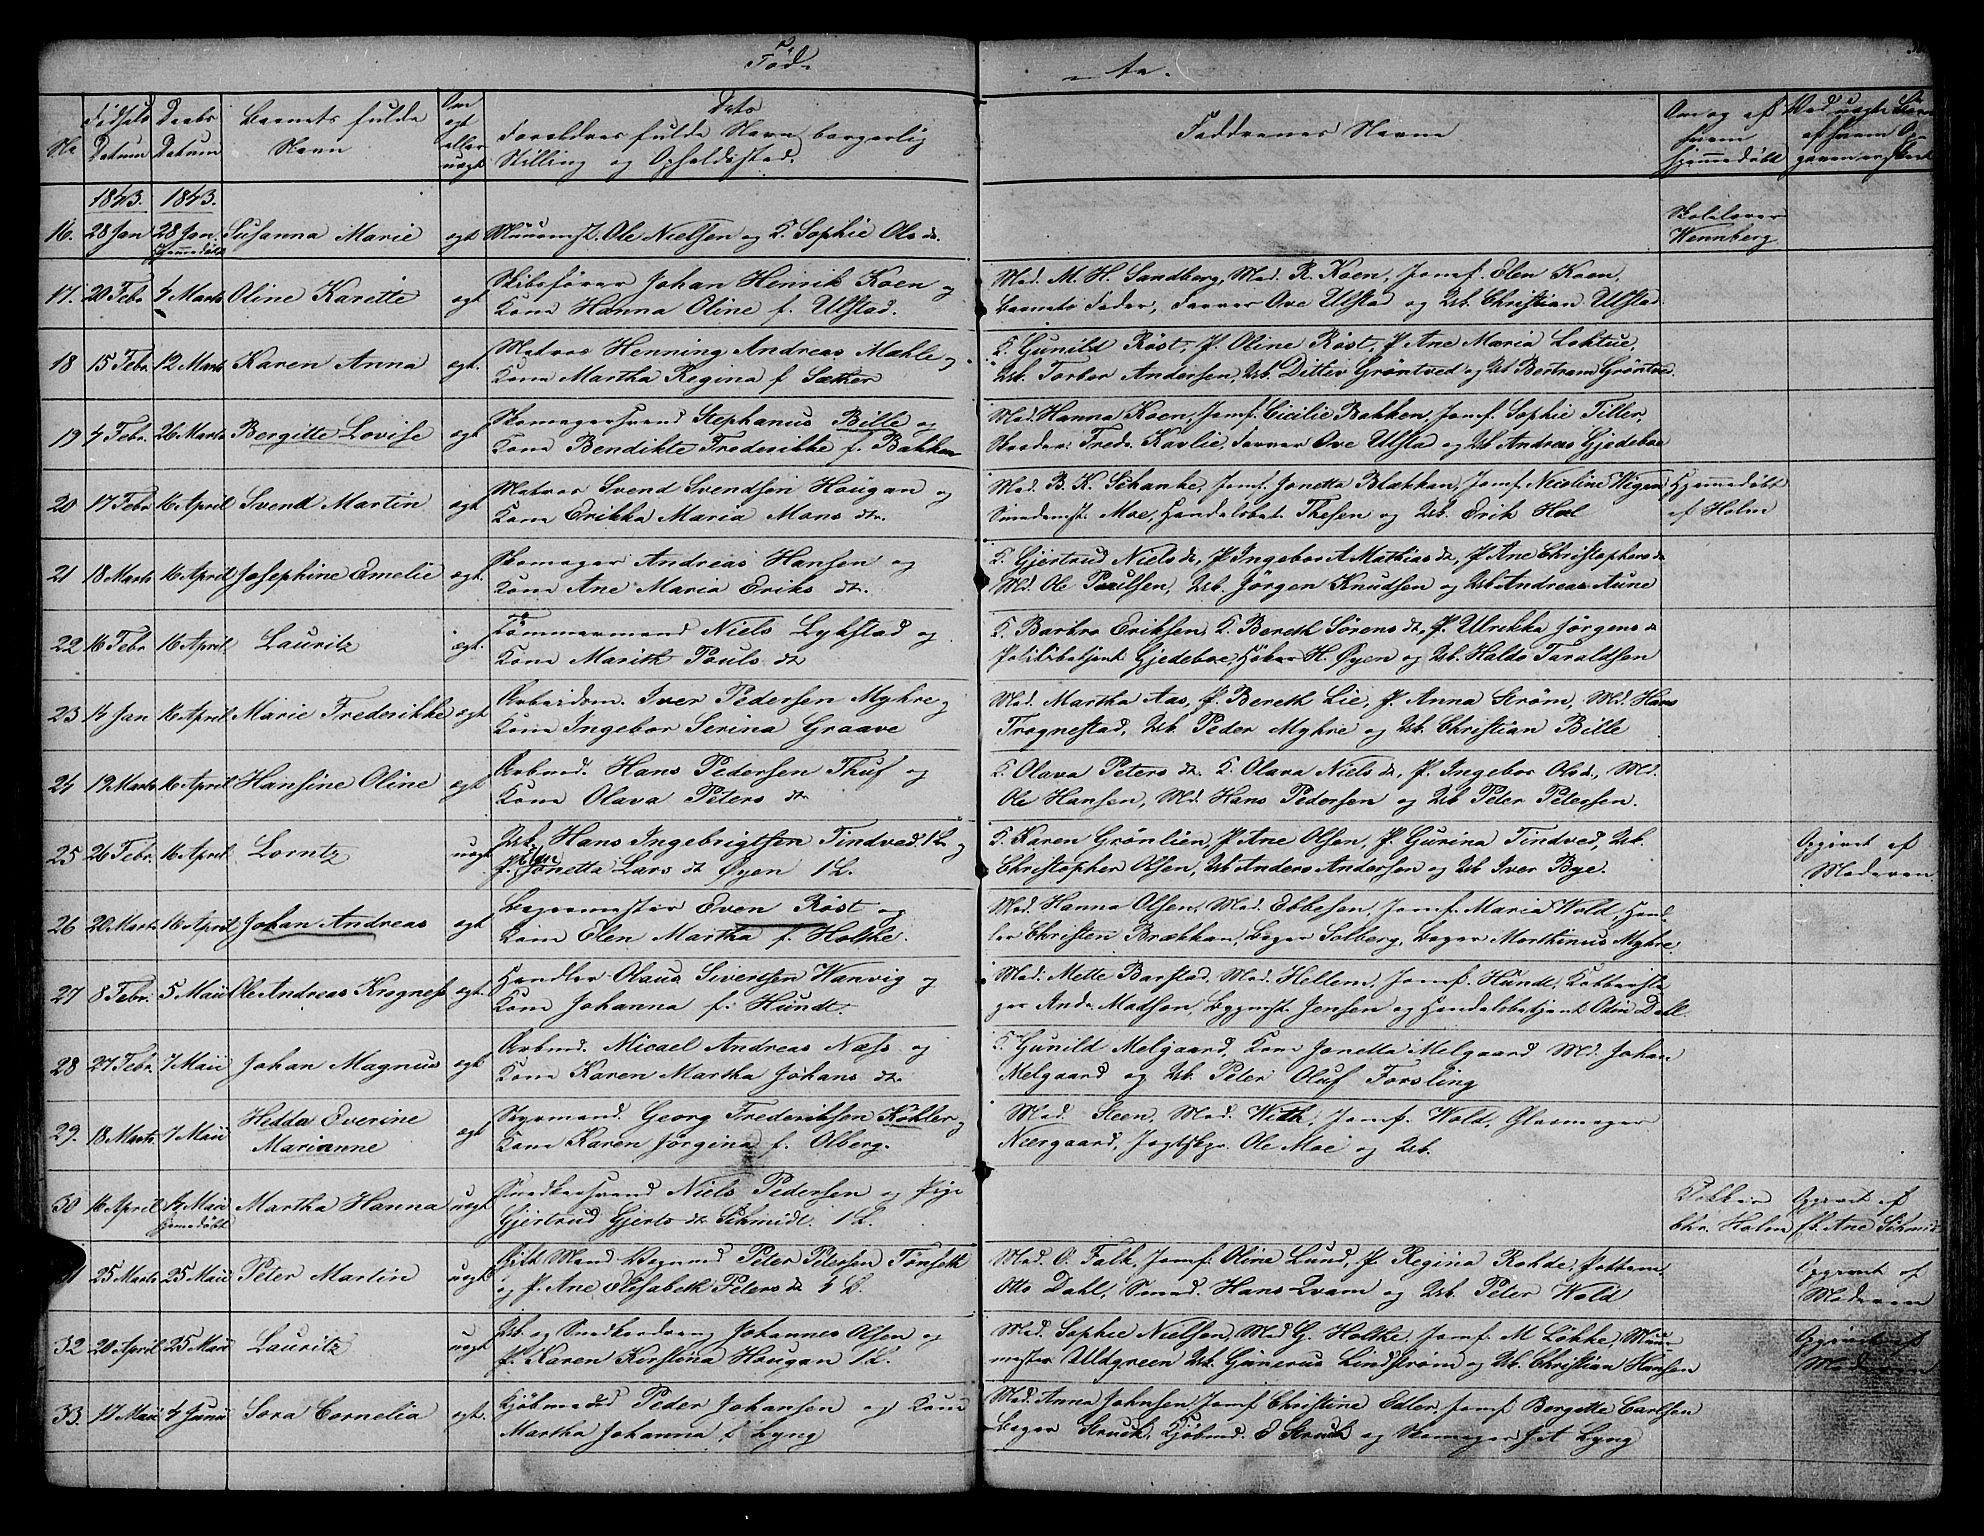 Fød-
te.
No
Fødsels Datum
Daabs Datum
Barnets fulde Navn
Om ægt eller uægt
Dets Forældres fulde Navn, borgerlig Stilling og Opholdssted.
Faddrenes Navne
Om og af hvem hjemmedøbt
1843. 1843.
16. 28 Jan 28 Jan hjemmedøbt Susanna Marie ægt Muurmst. Ole Nielsen og K. Sophie Ols dr.
Skolelærer Wennberg
17. 20 Febr 4 Marts Oline Karette ægt Skibsfører Johan Henrik Koen og
Kone Hanna Oline f. Ulstad.
Mad. M. H. Sandberg, Mad. R. Koen, Jomf. Elen Koen,
Barnets Fader, Farver Ove Ulstad og Usk. Christian Ulstad
18 15 Febr. 12 Marts Karen Anna ægt. Matros Henning Andreas Mæhle og
Kone Martha Regina f. Sæther
K. Gunild Røst, P. Olina Røst, P. Ane Maria Loktue,
Usk. Torber Andersen, Usk. Ditlev Grøntved og Usk Bertram Grøntved
19 4 Febr. 26 Marts Bergitte Lovise ægt Skomagersvend Stephanus Bille og
Kone Bendikte Frederikke f. Bakken
Mad. Hanna Koen, Jomf. Cicilie Bakken, Jomf. Sophie Tiller,
Skræder Fredr. Kavlie, Farver Ove Ulstad og Usk Andreas Gjedeboe
20 17 Febr 16 April Svend Martin ægt Matros Svend Svendsen Hougan og
Kone Erikka Maria Mons dr.
Mad. B. K. Schanke, Jomf. Jonetta Blakkan, Jomf. Nicoline Wigen
Smedemst. Moe, Handelsbet. Thesen og Usk. Erik Hoel
Hjemmedøbt
af Holm
21 18 Marts 16 April Josephine Emelie ægt. Skomager Andreas Hansen og
Kone Ane Maria Eriks dr.
K. Gjertrud Niels dr, P. Ingebor A Mathias dr, P. Ane Christophers dr
Md. Ole Paulsen, Usk. Jörgen Knudsen og Usk Andreas Aune
22 16 Febr 16 April Lauritz ægt. Tømmermand Niels Lykstad og
Kone Marith Pouls dr
K. Barbro Eriksen, K. Bereth Sörens dr, P. Ulrikka Jörgens dr
Politibetjent Gjedeboe, Høker H. Øyen og Usk. Haldo Taraldsen
23 14 Jan 16 April Marie Frederikke ægt Arbeidsm. Iver Pedersen Myhre og
Kone Ingebor Serina Graave
Mad. Martha Aas, P. Bereth Lie, P. Anna Strøm, Md. Hans
Trognestad, Usk. Peder Myhre og Usk. Christian Bille
24 19 Marts 16 April Hansine Oline ægt Arbmd. Hans Pedersen Thuf og
Kone Olava Peters dr
K. Olava Peters dr. K. Olava Niels dr, P. Ingebor Ols d., Md.
Ole Hansen, Md. Hans Pedersen og Usk Peter Petersen.
25 26 Febr. 16 April Lorntz uægt Usk. Hans Ingebrigtsen Tindved. 1 L. og
P. Elen Jonetta Lars dr Øyen 1 L.
K. Karen Grønlien, P. Ane Olsen, P. Gurina Tindved, Usk.
Christopher Olsen, Usk Anders Andersen og Usk Iver Bye.
Opgivet af
Moderen
26 20 Marts 16 April Johan Andreas ægt Bagermester Even Røst og
Kone Elen Martha f. Holthe.
Mad. Hanna Olsen, Mad. Ebbesen, Jomf. Maria Wold, Hand-
ler Christen Brækkan, Bager Solberg, Bager Marthinus Myhre
27 8 Febr. 5 Maii Ole Andreas Krogness ægt. Handler Olaus Sivertsen Wanvig og
Kone Johanna f. Hundt.
Mad. Mette Barstad, Mad. Hellem, Jomf. Hundt, Kobbersla-
ger Andr. Madsen, Bygmst. Jensen og Handelsbetjent Odin Dahl
28 27 Febr. 7 Maii Johan Magnus ægt Arbmd. Micael Andreas Næss og
Kone Karen Martha Johans dr.
K. Gunild Melgaard, Kone Jonetta Melgaard Md. Johan
Melgaard og Usk. Peter Oluf Forsling
29. 18 Marts 7 Maii Hedda Everine
Marianne ægt Styrmand. Georg Frederiksen Köhler og
Kone Karen Jørgina f. Olberg.
Mad. Steen, Mad. With, Jomf. Wold, Glasmager
Nærgaard, Ole Moe og Usk.
30 16 April 14 Maii hjemmedøbt Martha Hanna uægt Snedkersvend Niels Pedersen og Pige
Gjertrud Gjerts dr Schmidt. 1 L.
Chr. Holm
Opgivet af
fr. Ane Schmidt
31 25 Marts 25 Maii Peter Martin uægt Gift Mand Vognmd Peter Petersen Tønseth
og P. Ane Elisabeth Peters dr 1 L.
Mad. O. Falk, Jomf. Oline Lund, P. Regina Rohde, Pottem.
Otto Dahl, Smed. Hans Qvam og Usk. Peter Wold
Opgivet af
Moderen
32 20 April 25 Maii Lauritz uægt Usk. og Snedkerdreng Johannes Olsen og
P. Karen Kirstina Hougan 1 L.
Mad. Sophie Nielsen, Mad G. Holthe, Jomf. M. Løkke, Muur-
mester Alldgreen Usk. Gunerus Lindstrøm og Usk. Christian Hansen
Opgivet af
Moderen
33. 17 Maii 4 Junii Sara Cornelia ægt. Kjøbmand Peder Johansen og Kone
Martha Johanna f. Lyng
Mad. Anna Johnsen, Jomf. Christine Edler, Jomf. Bergette Carlsen
Bager Struck, Kjøbmd. E Struck og Skomager J. A Lyng